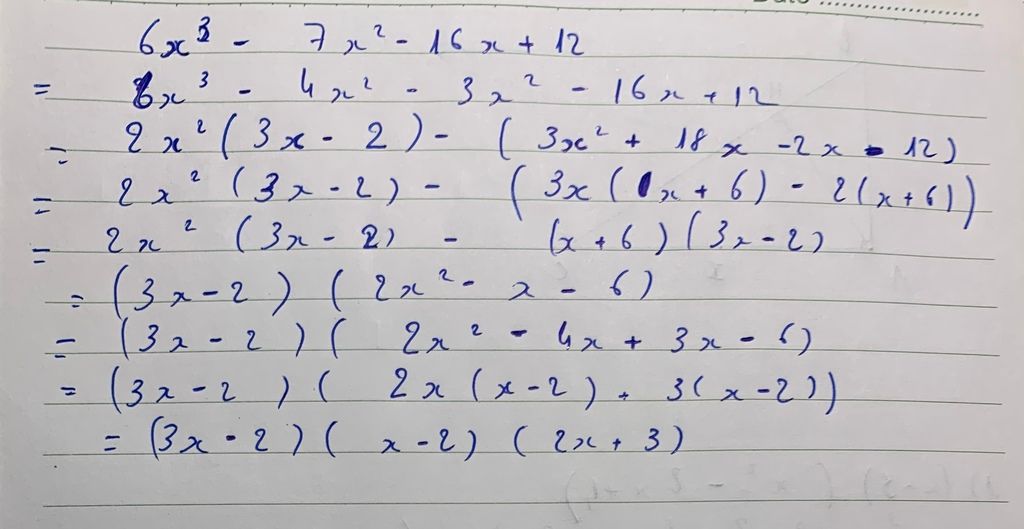 6x³ - 7x² - 16x + 12
= 6x³ - 4x² - 3x² - 16x + 12
= 2x² (3x - 2) - (3x² + 18x - 2x - 12)
= 2x² (3x - 2) - (3x (x + 6) - 2(x + 6))
= 2x² (3x - 2) - (x + 6) (3x - 2)
= (3x - 2) (2x² - x - 6)
= (3x - 2) (2x² - 4x + 3x - 6)
= (3x - 2) (2x (x - 2) + 3(x - 2))
= (3x - 2) (x - 2) (2x + 3)